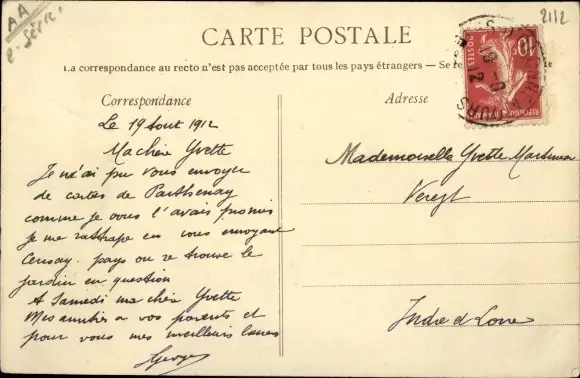 AA
2112
CARTE POSTALE
La correspondance au recto n'est pas acceptée par tous les pays étrangers — Se
Correspondance
Le 19 Aout 1912
Ma chère Yvette
Je n'ai pu vous envoyer
de cartes de Parthenay
comme je vous l'avais promis
je me rattrape en vous envoyant
Cersay. pays ou se trouve le
jardin en question
A Samedi ma chère Yvette
Mes amitiés a vos parents et
pour vous mes meilleurs baisers
Georges
Adresse
Mademoiselle Yvette
Veretz
Indre et Loire
10
POSTES